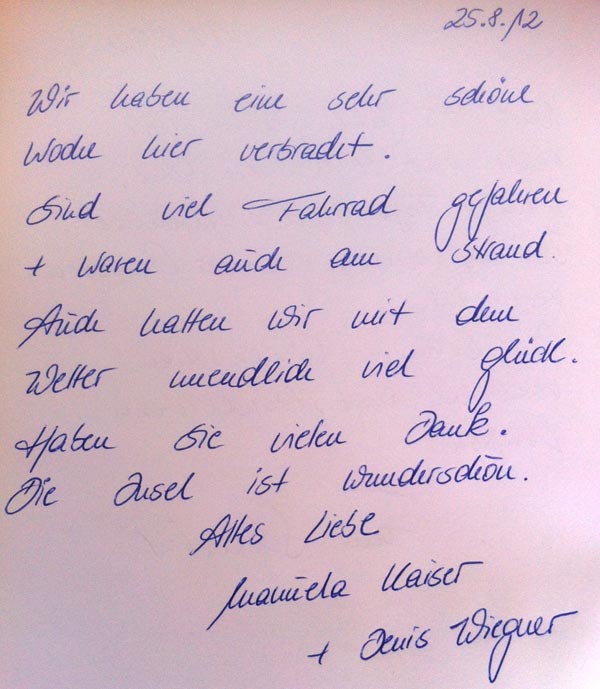 25.8.12
Wir haben eine sehr schöne
Woche hier verbracht.
Sind viel Fahrrad gefahren
+ waren auch am Strand.
Auch hatten wir mit dem
Wetter unendlich viel glück.
Haben Sie vielen Dank.
Die Insel ist wunderschön.
Alles Liebe
Manuela Kaiser
+ Denis Wiegner